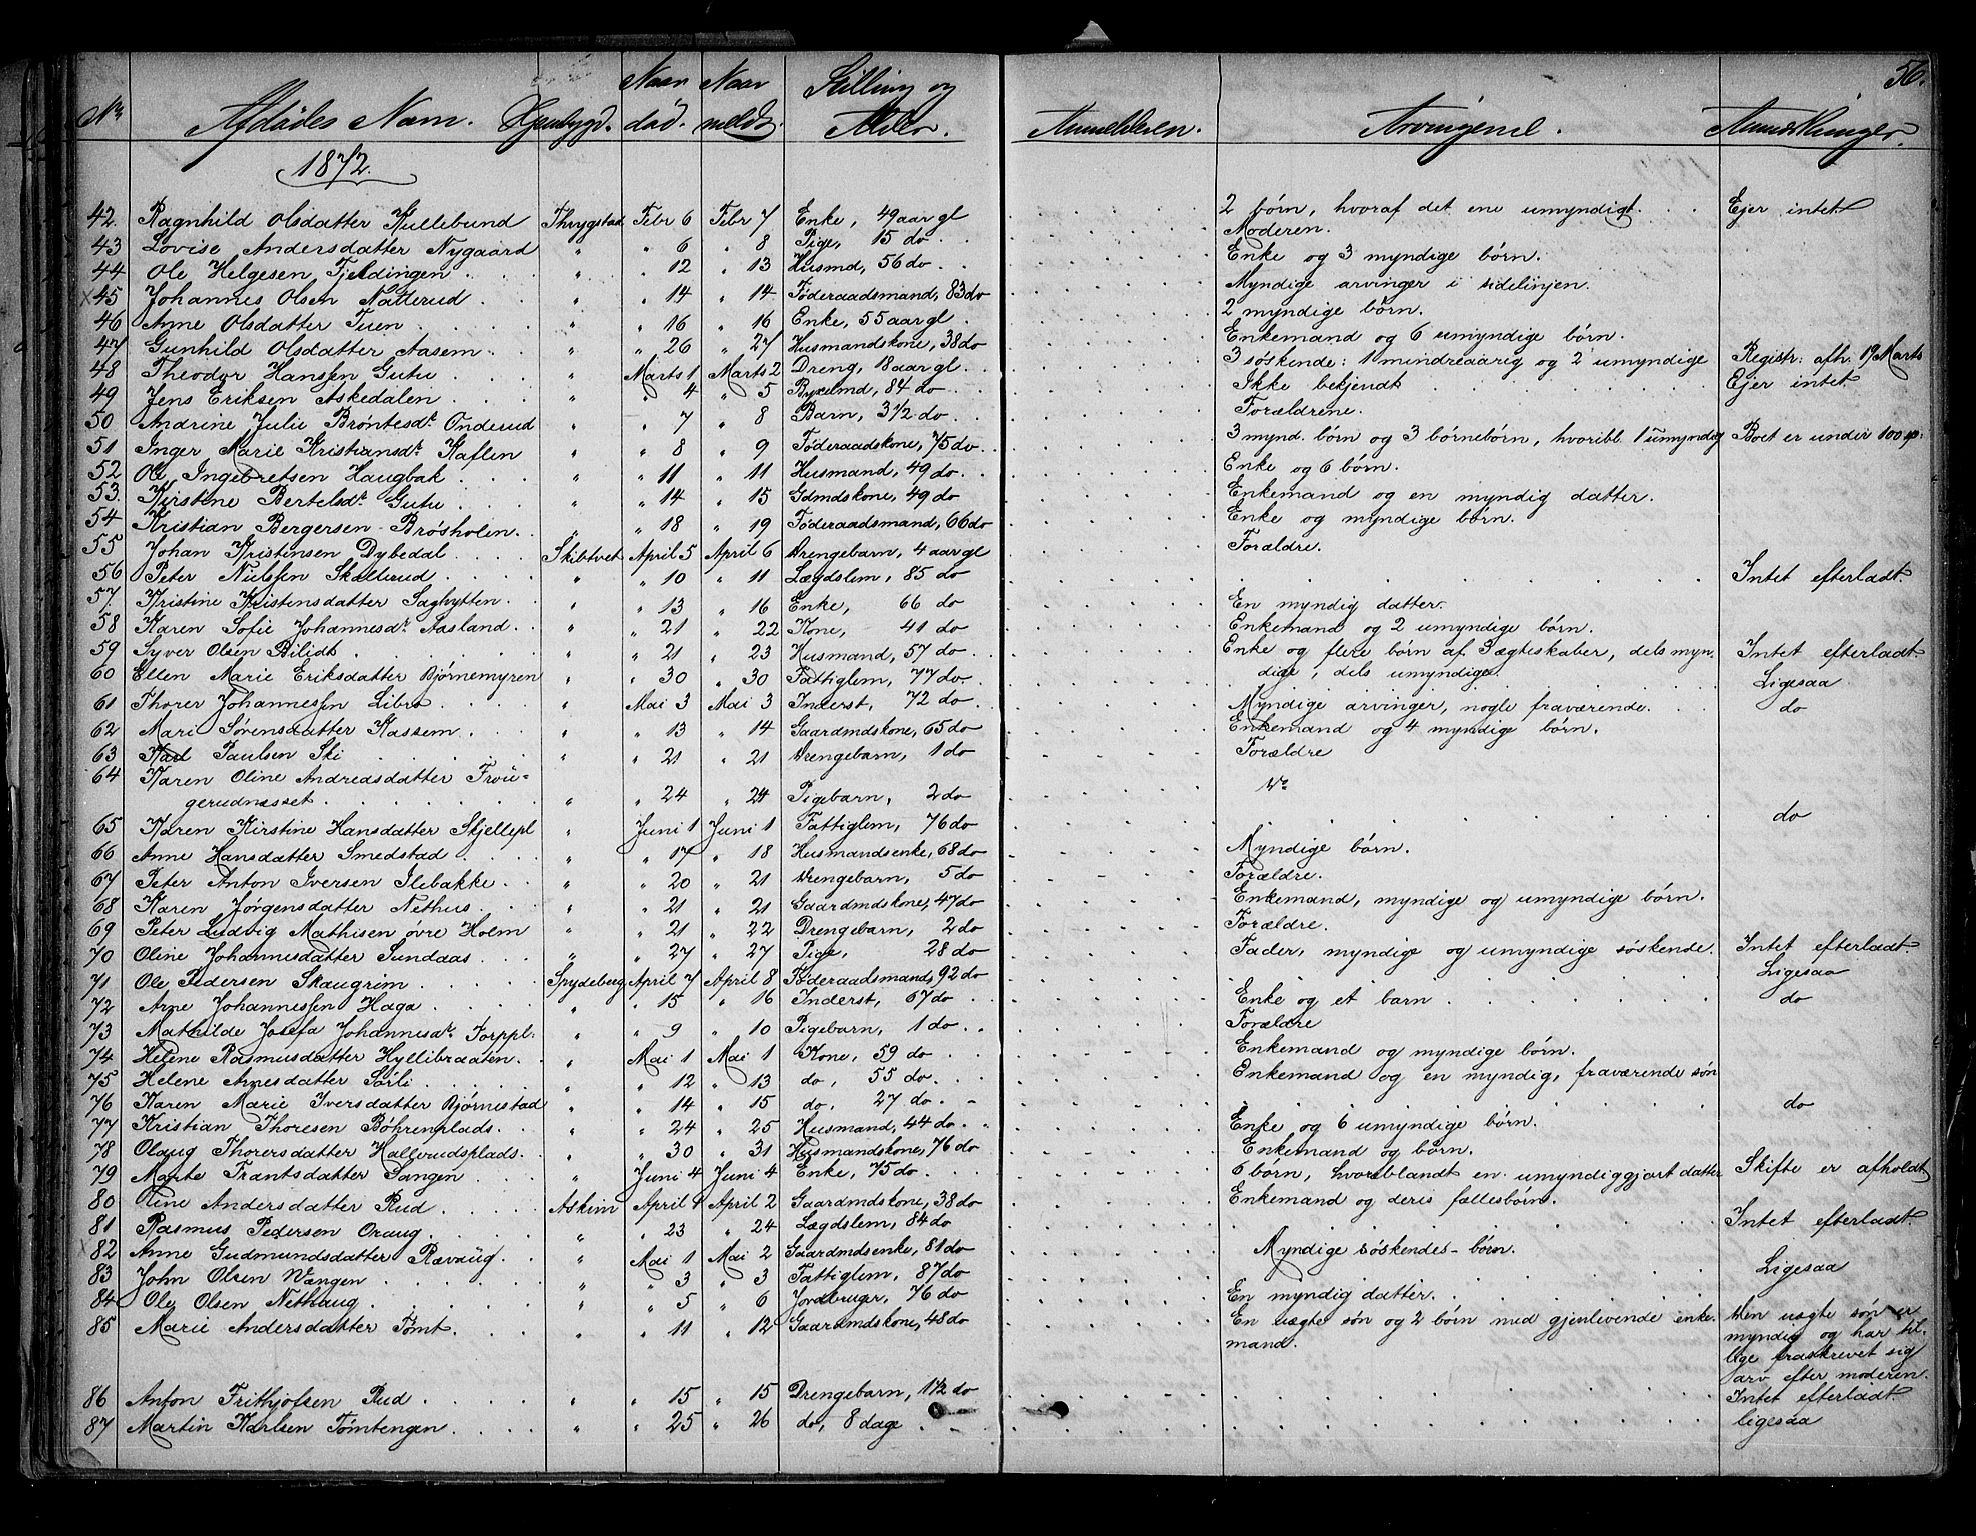 56.
Nr Afdødes Navn. Hjembygd. Naar død. Naar meldt. Stilling og Alder. Anmelderen. Arvingerne. Anmærkninger.
1872.
42. Ragnhild Olsdatter Kullebund Thrygstad Febr 6 Febr 7 Enke, 49 aar gl 2 børn, hvoraf det ene umyndigt. Ejer intet
43 Lovise Andersdatter Nygaard " " 6 " 8 Pige, 15 do Moderen.
44 Ole Helgesen Fjeldingen " " 12 " 13 Husmd, 56 do Enke og 3 myndige børn.
x45 Johannes Olsen Natterud " " 14 " 14 Føderaadsmand, 83 do Myndige arvinger i sidelinjen.
46 Anne Olsdatter Tuen " " 16 " 16 Enke, 55 aar gl 2 myndige børn.
47 Gunhild Olsdatter Aasem " " 26 " 27 Husmandskone, 38 do Enkemand og 6 umyndige børn.
48 Theodor Hansen Gutu " Marts 1 Marts 2 Dreng, 18 aar gl 3 søskende: 1 mindreaarig og 2 umyndige Registr: afh. 19 Marts
49 Jens Eriksen Askedalen " " 4 " 5 Byxelmd, 84 do Ikke bekjendt Ejer intet
50 Andrine Julie Brøntesdr. Onderud " " 7 " 8 Barn, 3 1/2 do Forældrene.
51 Inger Marie Kristiansdr. Kaflen " " 8 " 9 Føderaadskone, 75 do 3 mynd. børn og 3 børnebørn, hvoribl. 1 umyndig Boet er under 100
52 Ole Ingebretsen Haugbak " " 11 " 11 Husmand, 49 do Enke og 6 børn.
53. Kristine Bertelsdr. Gutu " " 14 " 15 Gdmdskone, 49 do Enkemand og en myndig datter.
54 Kristian Bergersen Brøsholen. " " 18 " 19 Føderaadsmand, 66 do Enke og myndige børn.
55 Johan Kristensen Dybedal Skibtvet April 5 April 6 Drengebarn, 4 aar gl Forældre.
56 Peter Nielsen Skallerud " " 10 " 11 Lægdslem, 85 do Intet efterladt
57. Kristine Kristensdatter Saghytten " " 13 " 16 Enke, 66 do En myndig datter.
58 Karen Sofie Johannesdr. Aasland " " 21 " 22 Kone, 41 do Enkemand og 2 umyndige børn.
59 Syver Olsen Bilidt " " 21 " 23 Husmand, 57 do Enke og flere børn af 3 ægteskaber, dels myn- Intet efterladt
60 Ellen Marie Eriksdatter Bjørnemyren " " 30 " 30 Fattiglem, 77 do dige, dels umyndige. Ligesaa
61 Thorer Johannessen Libro " Mai 3 Mai 3 Inderst, 72 do Myndige arvinger, nogle fraværende. do
62 Mari Sørensdatter Kassem " " 13 " 14 Gaardmdskone, 65 do Enkemand og 4 myndige børn.
63 Karl Paulsen Ski " " 21 " 21 Drengebarn, 1 do Forældre
64 Karen Oline Andreasdatter Frou-
gerudnæsset " " 24 " 24 Pigebarn, 2 do Do
65 Karen Kirstine Hansdatter Skjellepl " Juni 1 Juni 1 Fattiglem, 76 do do
66 Anne Hansdatter Smedstad " " 17 " 18 Husmandsenke, 68 do Myndige børn.
67 Peter Anton Iversen Ilebakke " " 20 " 21 Drengebarn, 5 do Forældre.
68 Karen Jørgensdatter Nethus " " 21 " 21 Gaardmdskone, 47 do Enkemand, myndige og umyndige børn.
69 Peter Ludvig Mathisen øvre Holm " " 21 " 22 Drengebarn, 2 do Forældre.
70 Oline Johannesdatter Sundaas " " 27 " 27 Pige, 28 do Fader, myndige og umyndige søskende. Intet efterladt
71 Ole Pedersen Skaugrim Spydeberg April 7 April 8 Føderaadsmand, 92 do Ligesaa
72 Arne Johannessen Haga " " 15 " 16 Inderst, 67 do Enke og et barn do
73 Mathilde Josefa Johannesdr. Torppl: " " 9 " 10 Pigebarn, 1 do Forældre
74 Helene Rasmusdatter Hyllibraaten. " Mai 1 Mai 1 Kone, 59 do Enkemand og myndige børn.
75 Helene Arnesdatter Sørli " " 12 " 13 do, 55 do Enkemand og en myndig, fraværende søn
76 Karen Marie Iversdatter Bjørnestad " " 14 " 15 do, 27 do do
77 Kristian Thoresen Bøhrenplads " " 24 " 25 Husmand, 44 do Enke og 6 umyndige børn.
78 Olaug Thorersdatter Hallerudsplads " " 30 " 31 Husmandskone, 76 do Enkemand og børn.
79 Marte Frantsdatter Sangen " Juni 4 Juni 4 Enke, 75 do 6 børn, hvoriblandt en umyndiggjort datter Skifte er afholdt
80 Oline Andersdatter Rud Askim April 1 April 2 Gaardmdskone, 38 do Enkemand og deris fællesbørn.
81 Rasmus Pedersen Oraug " " 23 " 24 Lægdslem, 84 do Intet efterladt
82 Anne Gudmundsdatter Rævaug " Mai 1 Mai 2 Gaardmdsenke, 81 do Myndige søskendes-børn.
83 John Olsen Wangen " " 3 " 3 Fattiglem, 87 do Ligesaa
84 Ole Olsen Nethaug " " 5 " 6 Jordbruger, 76 do En myndig datter.
85 Marie Andersdatter Tømt " " 11 " 12 Gaardmdskone, 48 do En uægte søn og 2 børn med gjenlevende enke- Den uægte søn er
mand. myndig og har til-
lige fraskrevet sig
arv efter moderen.
86 Anton Frithjofsen Rud " " 15 " 15 Drengebarn, 1 1/2 do Intet efterladt
87 Martin Karlsen Tømtengen " " 25 " 26 do, 8 dage ligesaa